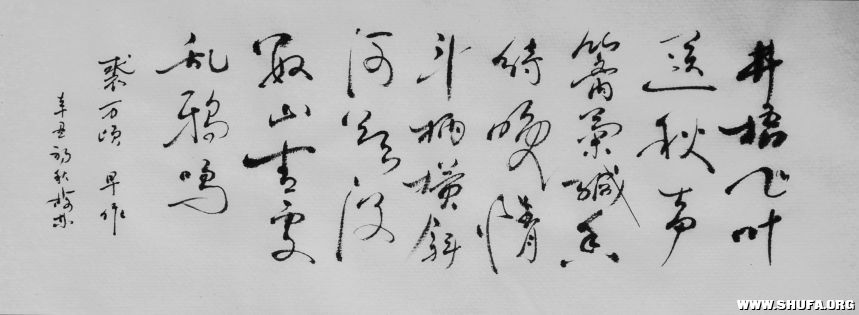 井梧飞叶
送秋声
篱菊缄香
待晚晴
斗柄横斜
河欲没
数山青处
乱鸦鸣
裘万顷 早作
辛丑初秋
WWW.SHUFA.ORG